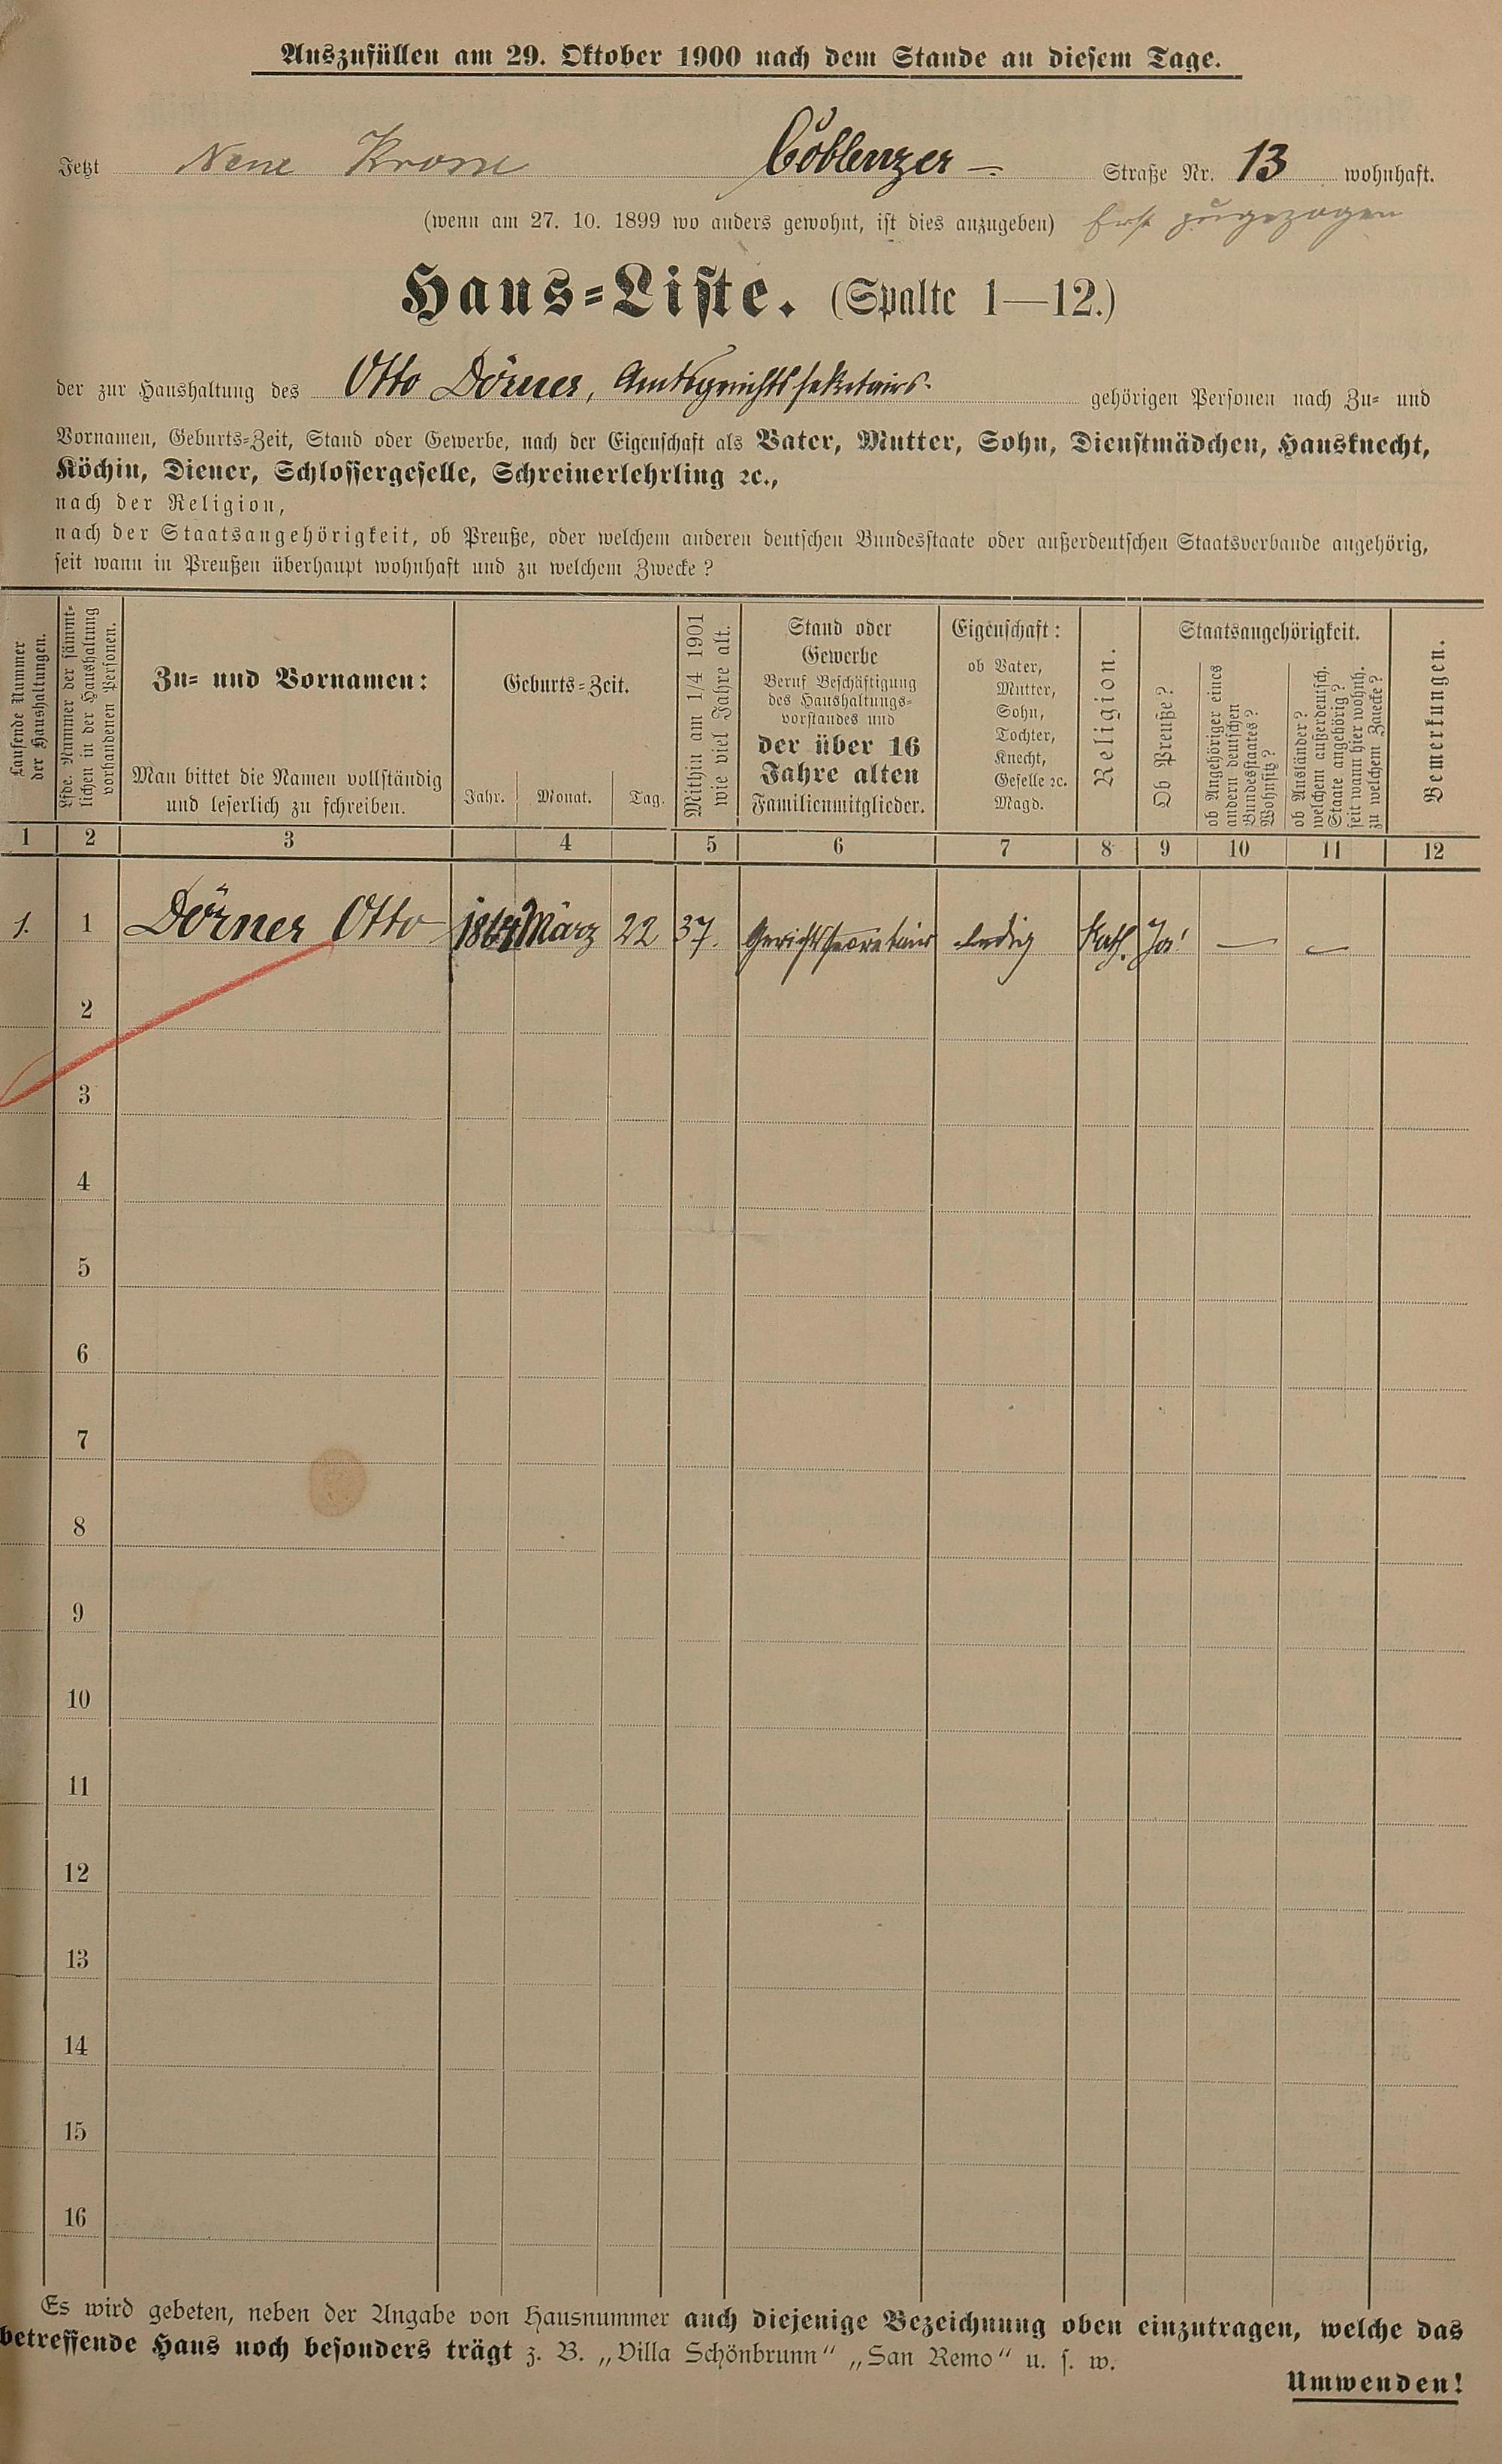 Auszufüllen am 29. Oktober 1900 nach dem Stande an diesem Tage.
Jetzt Neue Krone Coblenzer- Straße Nr. 13 wohnhaft.
(wenn am 27. 10. 1899 wo anders gewohnt, ist dies anzugeben) Erst zugezogen
Haus=Liste. (Spalte 1—12.)
der zur Haushaltung des Otto Dörner, Amtsgerichtssekretairs. gehörigen Personen nach Zu= und
Vornamen, Geburts=Zeit, Stand oder Gewerbe, nach der Eigenschaft als Vater, Mutter, Sohn, Dienstmädchen, Hausknecht,
Köchin, Diener, Schlossergeselle, Schreinerlehrling ꝛc.,
nach der Religion,
nach der Staatsangehörigkeit, ob Preuße, oder welchem anderen deutschen Bundesstaate oder außerdeutschen Staatsverbande angehörig,
seit wann in Preußen überhaupt wohnhaft und zu welchem Zwecke?
Laufende Nummer
der Haushaltungen.
Lfde. Nummer der sämmt=
lichen in der Haushaltung
vorhandenen Personen.
Zu= und Vornamen:
Man bittet die Namen vollständig
und leserlich zu schreiben.
Geburts=Zeit.
Jahr. Monat. Tag.
Mithin am 1/4 1901
wie viel Jahre alt.
Stand oder
Gewerbe
Beruf Beschäftigung
des Haushaltungs=
vorstandes und
der über 16
Jahre alten
Familienmitglieder.
Eigenschaft:
ob Vater,
Mutter,
Sohn,
Tochter,
Knecht,
Geselle ꝛc.
Magd.
Religion.
Staatsangehörigkeit.
Ob Preuße?
ob Angehöriger eines
andern deutschen
Bundesstaates?
Wohnsitz?
ob Ausländer?
welchem außerdeutsch.
Staate angehörig?
seit wann hier wohnh.
zu welchem Zwecke?
Bemerkungen.
1 2 3 4 5 6 7 8 9 10 11 12
1. 1 Dörner Otto März 22 37. Gerichtssecretair ledig Kath. Ja! — —
2
3
4
5
6
7
8
9
10
11
12
13
14
15
16
Es wird gebeten, neben der Angabe von Hausnummer auch diejenige Bezeichnung oben einzutragen, welche das
betreffende Haus noch besonders trägt z. B. „Villa Schönbrunn" „San Remo" u. s. w.
Umwenden!